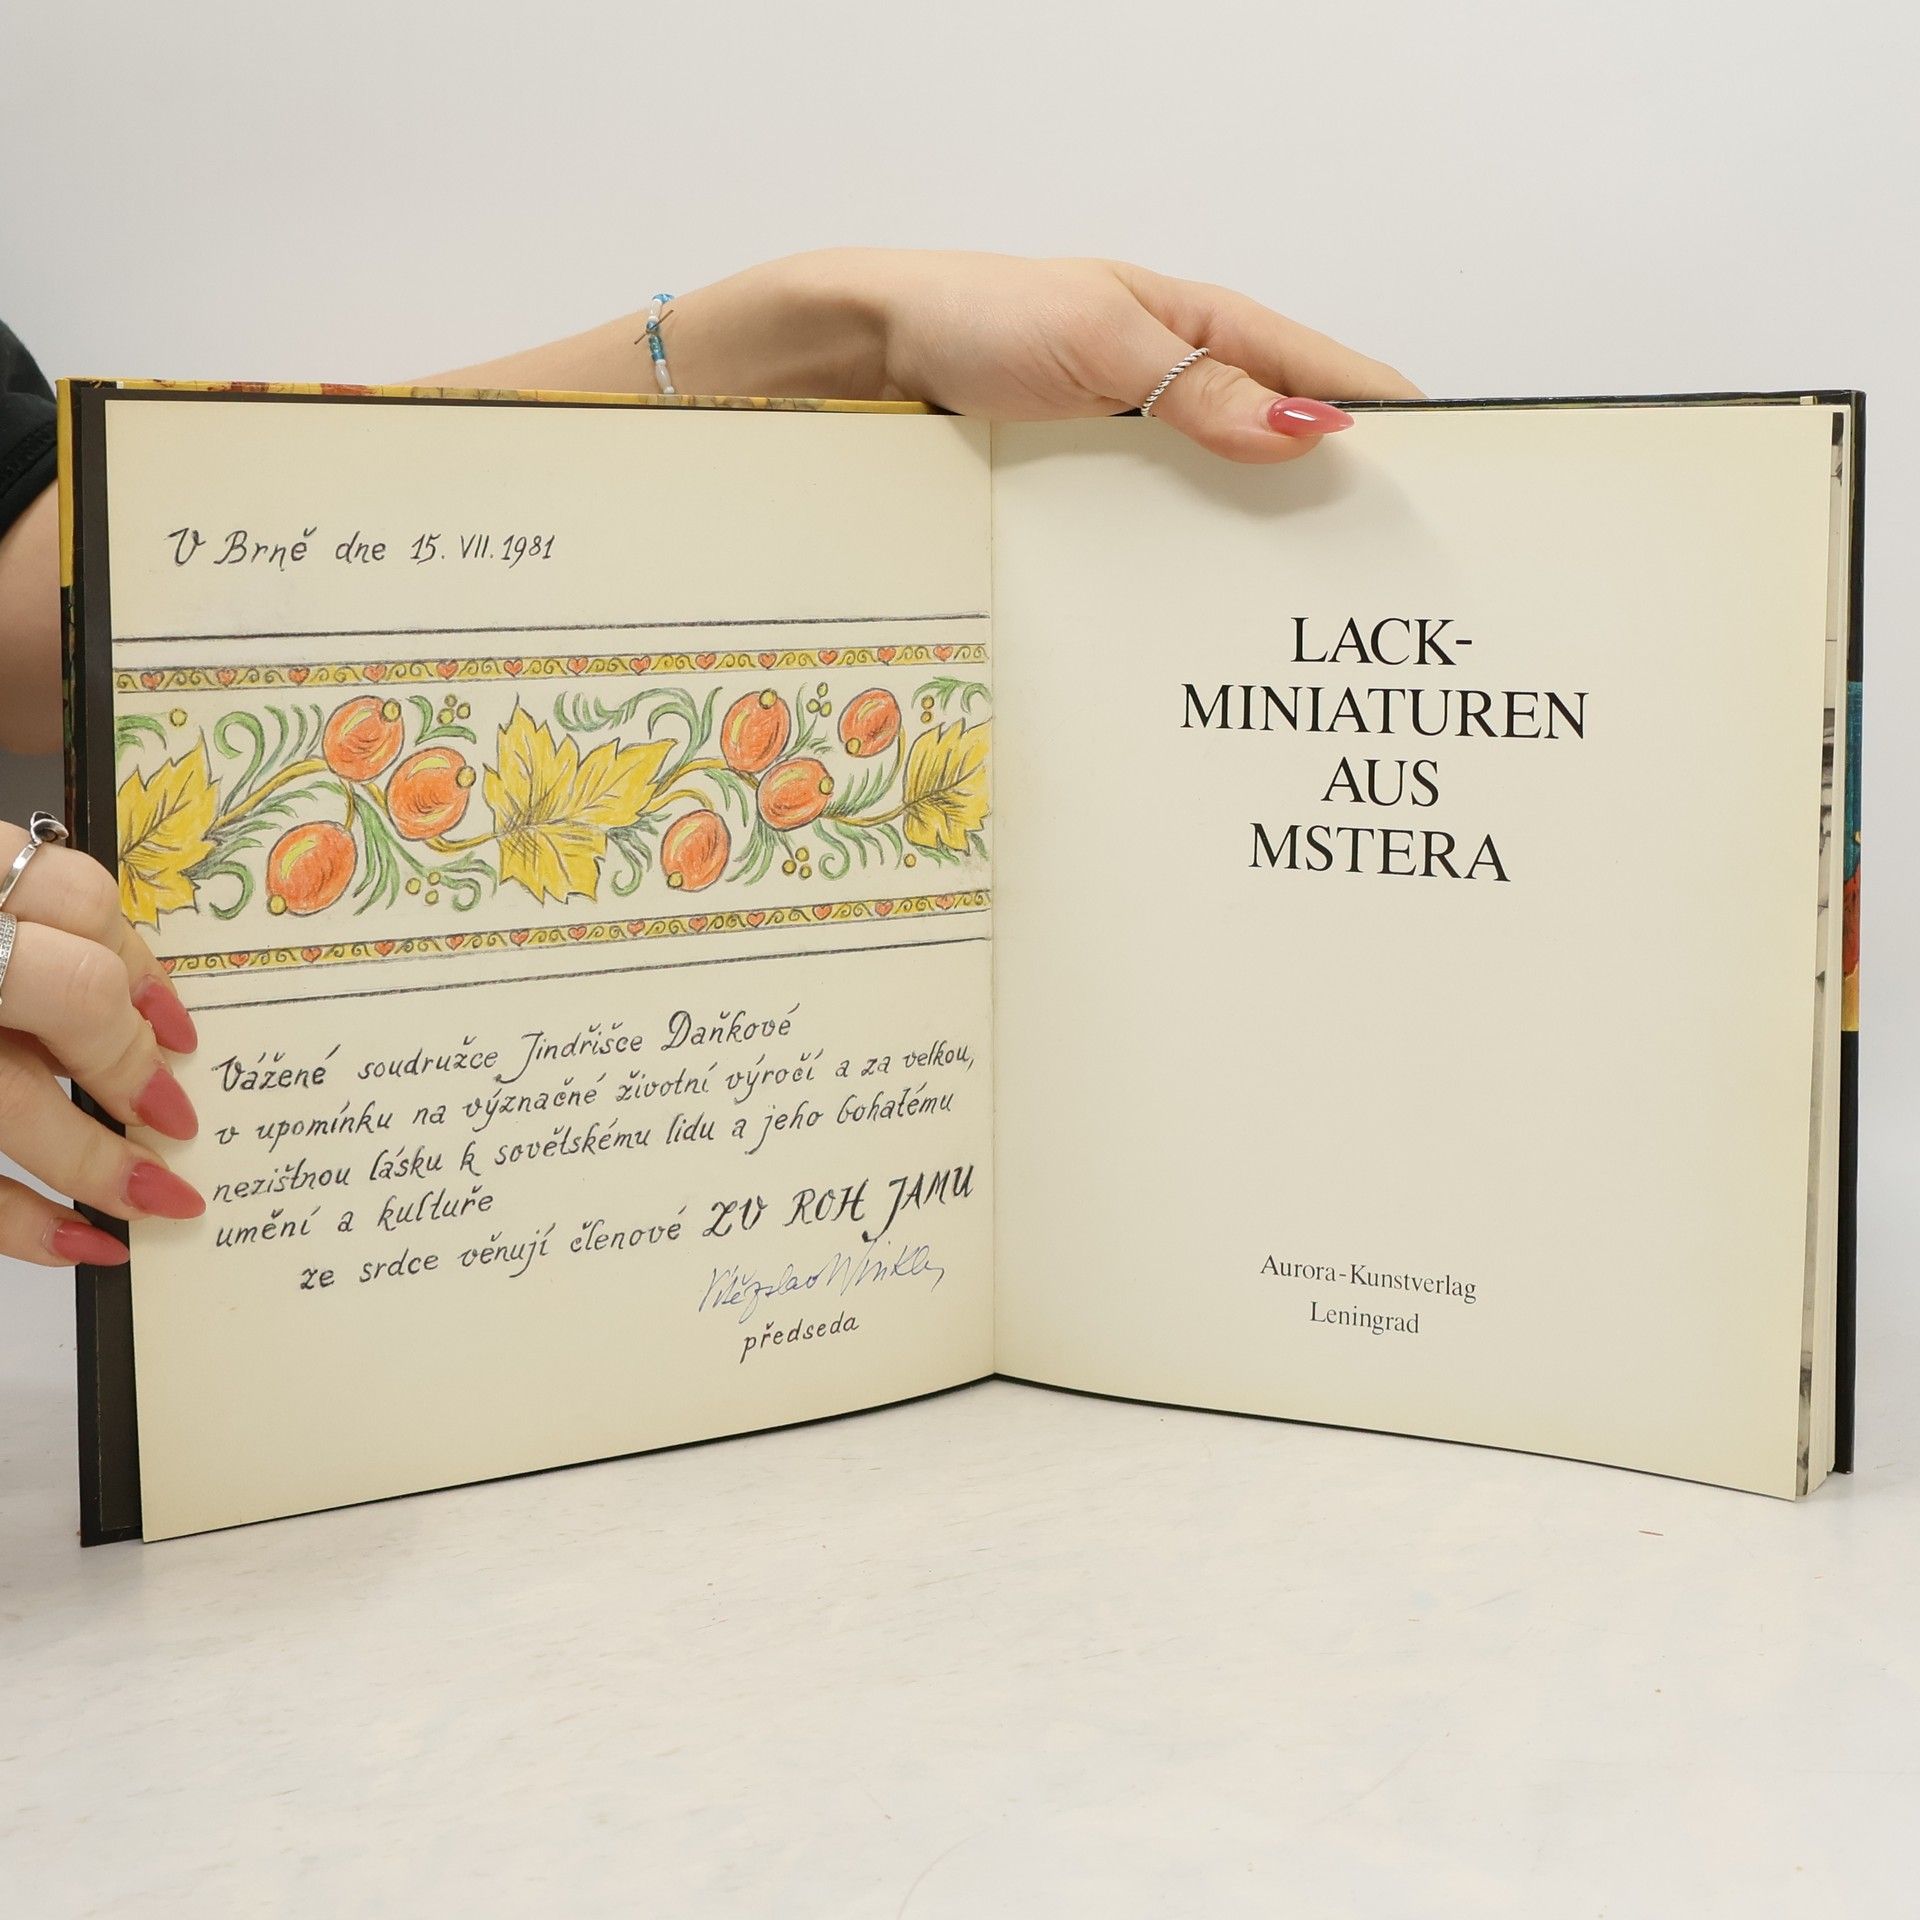 V Brně dne 15. VII. 1981
Vážené soudružce Jindřišce Daňkové
v upomínku na význačné životní výročí a za velkou,
nezištnou lásku k sovětskému lidu a jeho bohatému
umění a kultuře
ze srdce věnují členové ZV ROH JAMU
Vítězslav Winkler
předseda
LACK-
MINIATUREN
AUS
MSTERA
Aurora-Kunstverlag
Leningrad